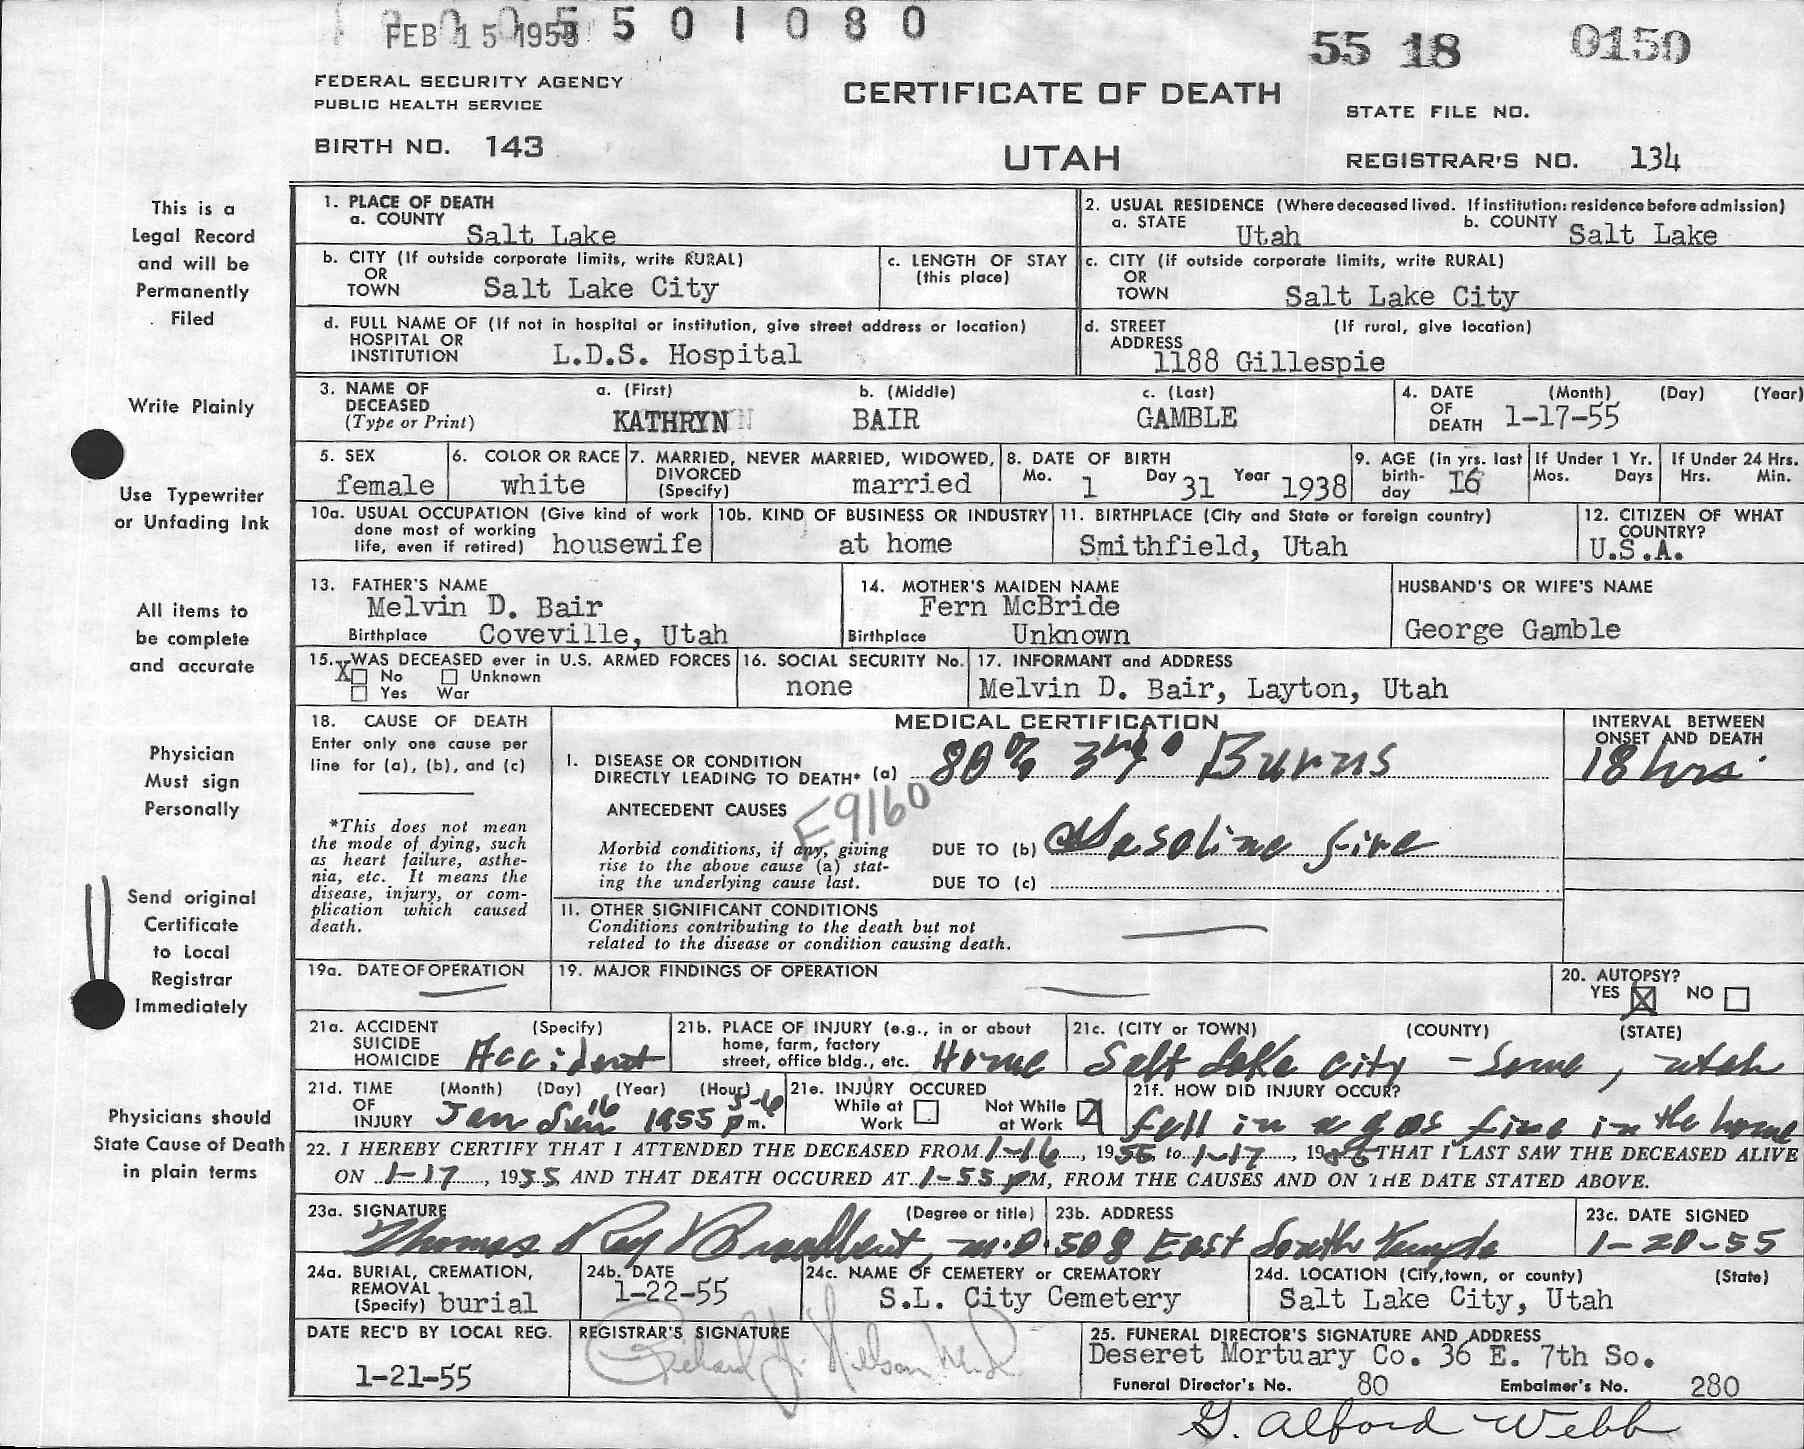 FEB 15 1955 5 5 0 1 0 8 0
55 18 0150
FEDERAL SECURITY AGENCY
PUBLIC HEALTH SERVICE
CERTIFICATE OF DEATH
STATE FILE NO.
BIRTH NO. 143
UTAH
REGISTRAR'S NO. 134
This is a
Legal Record
and will be
Permanently
Filed
Write Plainly
Use Typewriter
or Unfading Ink
All items to
be complete
and accurate
Physician
Must sign
Personally
Send original
Certificate
to Local
Registrar
Immediately
Physicians should
State Cause of Death
in plain terms
1. PLACE OF DEATH
a. COUNTY Salt Lake
2. USUAL RESIDENCE (Where deceased lived. If institution: residence before admission)
a. STATE Utah b. COUNTY Salt Lake
b. CITY (If outside corporate limits, write RURAL)
OR
TOWN Salt Lake City
c. LENGTH OF STAY
(this place)
c. CITY (if outside corporate limits, write RURAL)
OR
TOWN Salt Lake City
d. FULL NAME OF (If not in hospital or institution, give street address or location)
HOSPITAL OR
INSTITUTION L.D.S. Hospital
d. STREET (If rural, give location)
ADDRESS 1188 Gillespie
3. NAME OF
DECEASED
(Type or Print)
a. (First) b. (Middle) c. (Last)
KATHRYN BAIR GAMBLE
4. DATE (Month) (Day) (Year)
OF
DEATH 1-17-55
5. SEX
female
6. COLOR OR RACE
white
7. MARRIED, NEVER MARRIED, WIDOWED,
DIVORCED
(Specify) married
8. DATE OF BIRTH
Mo. 1 Day 31 Year 1938
9. AGE (in yrs. last
birth-
day 16
If Under 1 Yr.
Mos. Days
If Under 24 Hrs.
Hrs. Min.
10a. USUAL OCCUPATION (Give kind of work
done most of working
life, even if retired) housewife
10b. KIND OF BUSINESS OR INDUSTRY
at home
11. BIRTHPLACE (City and State or foreign country)
Smithfield, Utah
12. CITIZEN OF WHAT
COUNTRY?
U.S.A.
13. FATHER'S NAME
Melvin D. Bair
Birthplace Coveville, Utah
14. MOTHER'S MAIDEN NAME
Fern McBride
Birthplace Unknown
HUSBAND'S OR WIFE'S NAME
George Gamble
15. WAS DECEASED ever in U.S. ARMED FORCES
X No Unknown
Yes War
16. SOCIAL SECURITY No.
none
17. INFORMANT and ADDRESS
Melvin D. Bair, Layton, Utah
18. CAUSE OF DEATH
Enter only one cause per
line for (a), (b), and (c)
*This does not mean
the mode of dying, such
as heart failure, asthe-
nia, etc. It means the
disease, injury, or com-
plication which caused
death.
MEDICAL CERTIFICATION
I. DISEASE OR CONDITION
DIRECTLY LEADING TO DEATH* (a) 80% 3rd° Burns
ANTECEDENT CAUSES
E9160
Morbid conditions, if any, giving
rise to the above cause (a) stat-
ing the underlying cause last.
DUE TO (b) Gasoline fire
DUE TO (c)
II. OTHER SIGNIFICANT CONDITIONS
Conditions contributing to the death but not
related to the disease or condition causing death.
INTERVAL BETWEEN
ONSET AND DEATH
18 hrs.
19a. DATE OF OPERATION
19. MAJOR FINDINGS OF OPERATION
20. AUTOPSY?
YES X NO
21a. ACCIDENT (Specify)
SUICIDE
HOMICIDE Accident
21b. PLACE OF INJURY (e.g., in or about
home, farm, factory
street, office bldg., etc. Home
21c. (CITY or TOWN) (COUNTY) (STATE)
Salt Lake City - Same, Utah
21d. TIME (Month) (Day) (Year) (Hour)
OF
INJURY Jan Sun 16 1955 5-6 p m.
21e. INJURY OCCURED
While at
Work
Not While
at Work
21f. HOW DID INJURY OCCUR?
fell in a gas fire in the home
22. I HEREBY CERTIFY THAT I ATTENDED THE DECEASED FROM 1-16, 1955 to 1-17, 1955 THAT I LAST SAW THE DECEASED ALIVE
ON 1-17, 1955 AND THAT DEATH OCCURED AT 1-55 PM, FROM THE CAUSES AND ON THE DATE STATED ABOVE.
23a. SIGNATURE (Degree or title)
Thomas Ray Broadbent, M.D.
23b. ADDRESS
508 East South Temple
23c. DATE SIGNED
1-20-55
24a. BURIAL, CREMATION,
REMOVAL
(Specify) burial
24b. DATE
1-22-55
24c. NAME OF CEMETERY or CREMATORY
S.L. City Cemetery
24d. LOCATION (City, town, or county) (State)
Salt Lake City, Utah
DATE REC'D BY LOCAL REG.
1-21-55
REGISTRAR'S SIGNATURE
Richard J. Nelson M.D.
25. FUNERAL DIRECTOR'S SIGNATURE AND ADDRESS
Deseret Mortuary Co. 36 E. 7th So.
Funeral Director's No. 80 Embalmer's No. 280
G. Alford Webb